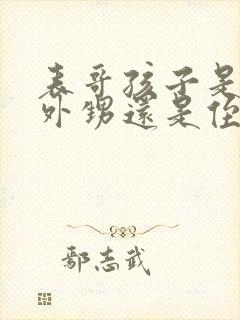 表哥孩子是
外甥還是侄
鄢志武